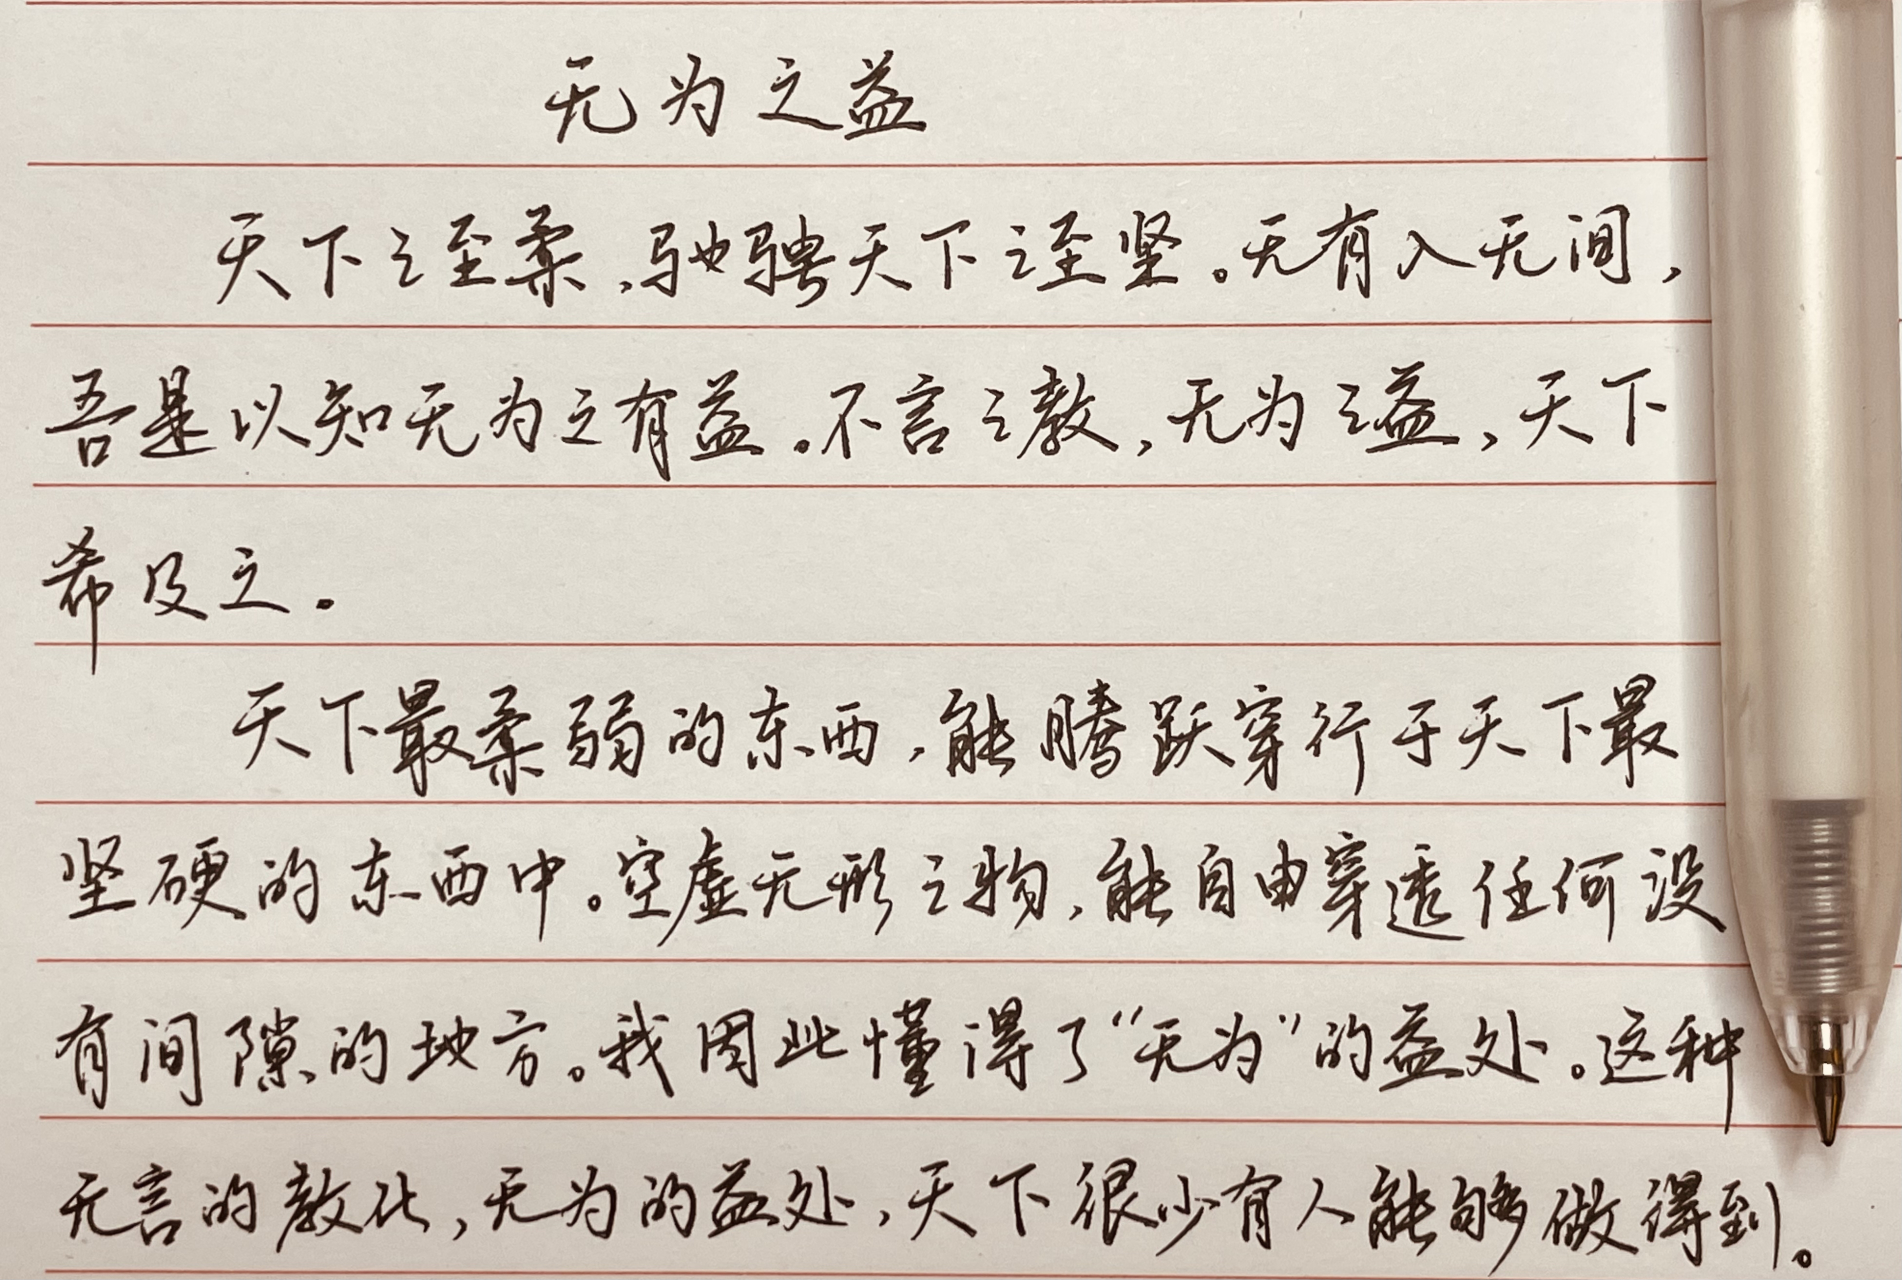 无为之益
天下之至柔,驰骋天下之至坚。无有入无间,
吾是以知无为之有益。不言之教,无为之益,天下
希及之。
天下最柔弱的东西,能腾跃穿行于天下最
坚硬的东西中。空虚无形之物,能自由穿透任何没
有间隙的地方。我因此懂得了“无为”的益处。这种
无言的教化,无为的益处,天下很少有人能够做得到。